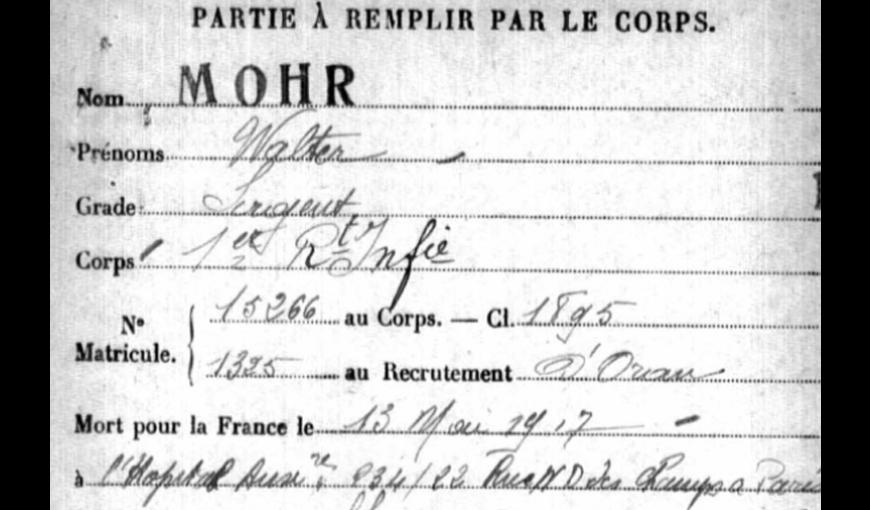 PARTIE À REMPLIR PAR LE CORPS.
Nom MOHR
Prénoms Walter
Grade Sergent
Corps 1er Rt Infie
No Matricule. 15266 au Corps. — Cl. 1895
1325 au Recrutement D'Oran
Mort pour la France le 13 Mai 1917
à l'Hopital Auxre 234/22 Rue N D des Champs a Paris